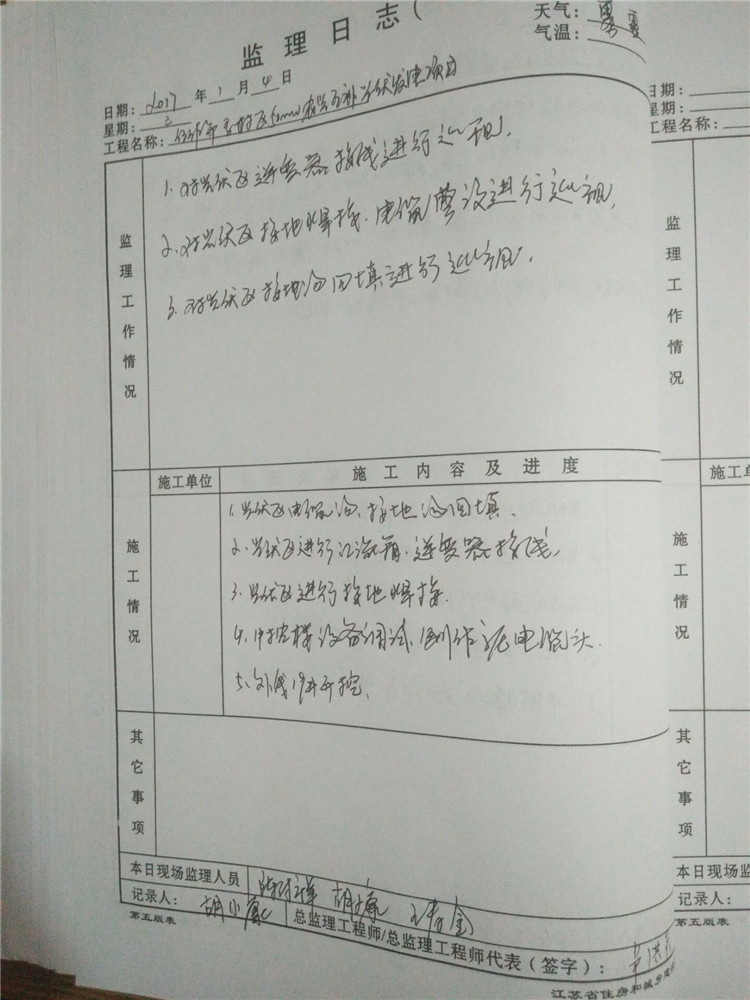 监理日志(
天气:
气温:
日期: 2017 年 1 月 4 日
星期: 三
工程名称:
监理工作情况
1. 对光伏区逆变器接线进行巡视.
2. 对光伏区接地焊接、电缆敷设进行巡视.
3. 对光伏区接地沟回填进行巡视.
施工单位 施工内容及进度
施工情况
1. 光伏区电缆沟、接地沟回填、
2. 光伏区进行汇流箱、逆变器接线,
3. 光伏区进行接地焊接.
4. 中控楼设备调试, 制作 电缆头.
5. 外线 开挖.
其它事项
本日现场监理人员 胡小
记录人: 胡小
总监理工程师/总监理工程师代表(签字):
第五版表
江苏省住房和城乡
日期:
星期:
工程名称:
监理工作情况
施工单
施工情况
其它事项
本日现场监理
记录人:
第五版表